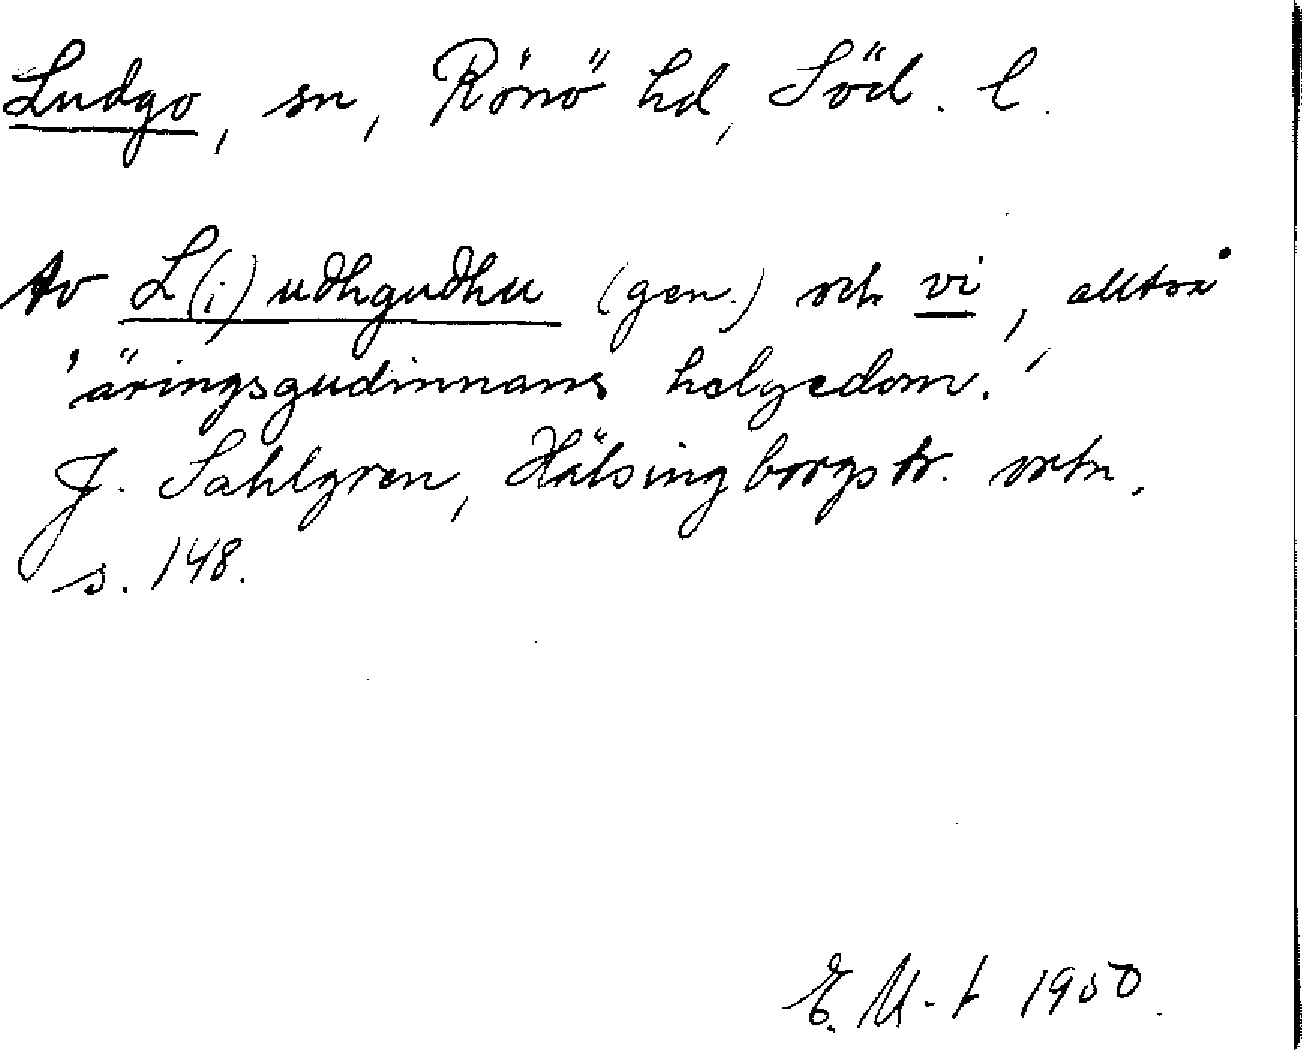 Ludgo, sn, Rönö hd, Söd. l.
Av L(i)udhgudhu (gen.) och vi, alltså
'äringsgudinnans helgedom.'
J. Sahlgren, Hälsingborgstr. ortn.
s. 148.
E. M-t 1950.